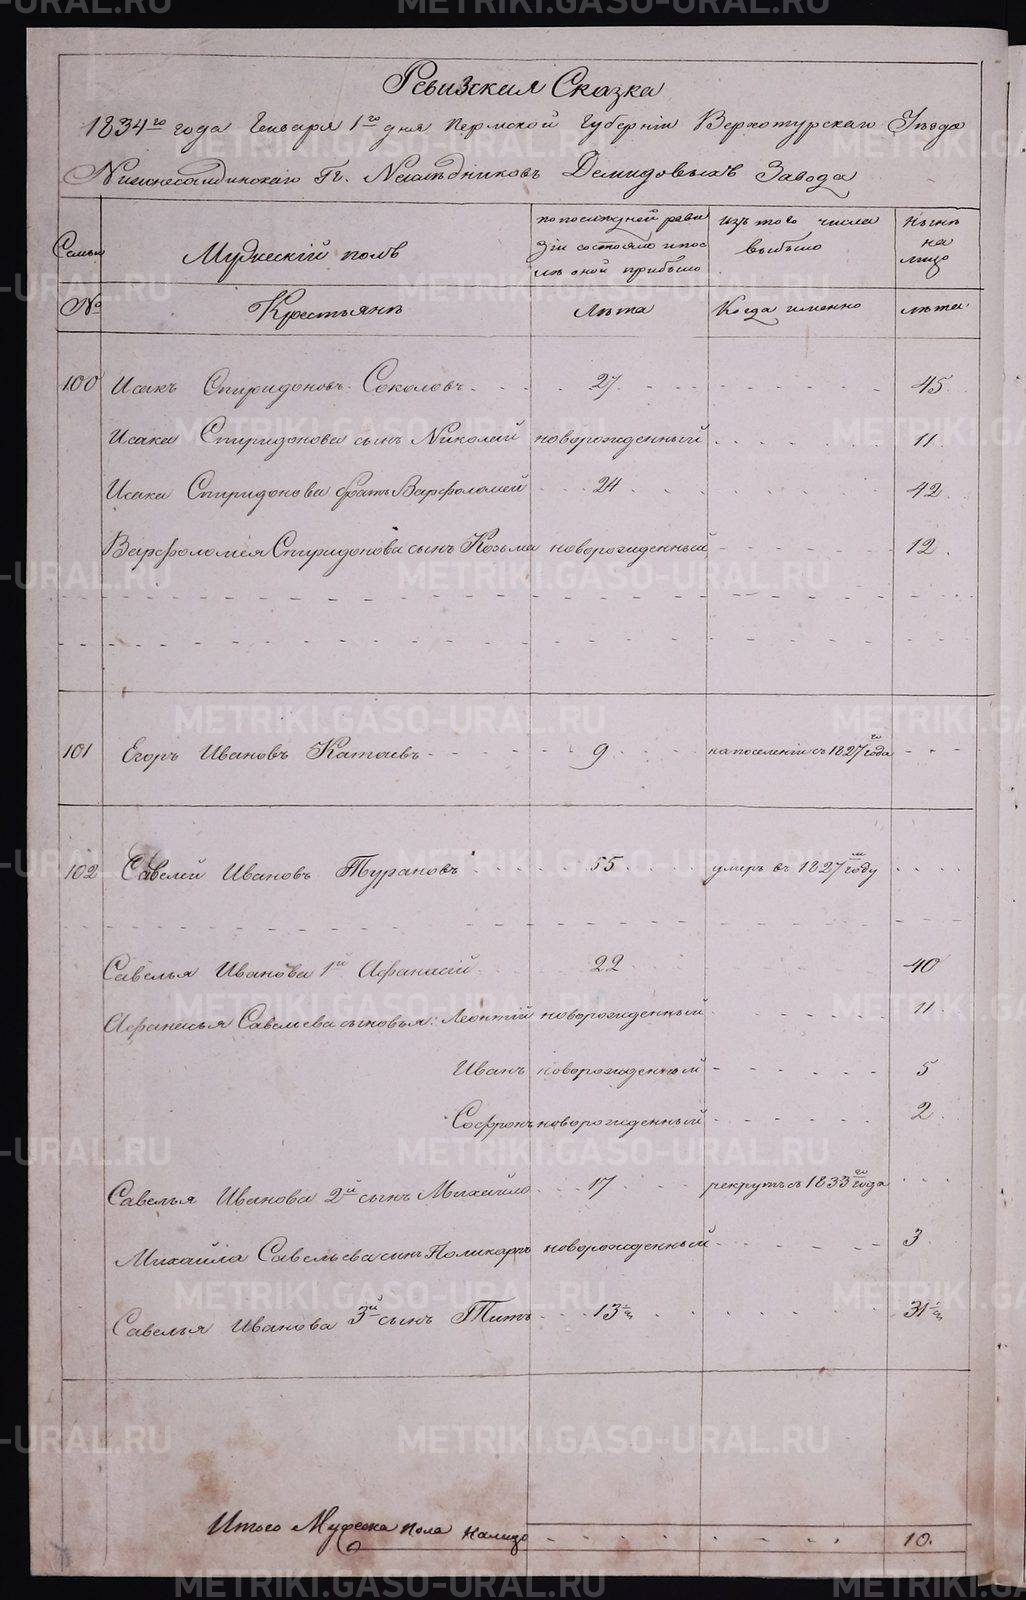 Ревизская Сказка
1834го года Генваря 1го дня Пермской Губернiи Верхотурскаго Уѣзда
Нижнесалдинскаго Гг. Наслѣдниковъ Демидовыхъ Завода
Семьи
№
Мужескiй полъ
Крестьянъ
по последней реви
зiи состояло и пос
лѣ оной прибыло
Лѣта
Изъ того числа
выбыло
Когда именно
Нынѣ
на
лицо
лѣта
100 Исакъ Спиридоновъ Соколовъ 27 45
Исака Спиридонова сынъ Николай новорожденный 11
Исака Спиридонова братъ Варфоломей 24 42
Варфоломея Спиридонова сынъ Козьма новорожденный 12
101 Егоръ Ивановъ Катаевъ 9 на поселенiи съ 1827го года
102 Савелей Ивановъ Турановъ 55 умеръ въ 1827м году
Савелья Иванова 1й Афанасiй 22 40
Афанасья Савельева сыновья: Леонтiй новорожденный 11
Иванъ новорожденный 5
Софронъ новорожденный 2
Савелья Иванова 2й сынъ Михайло 17 рекрутъ съ 1833го года
Михайла Савельева сынъ Поликарпъ новорожденный 3
Савелья Иванова 3й сынъ Титъ 13½ 31½
Итого Мужеска пола налицо 10.
METRIKI.GASO-URAL.RU